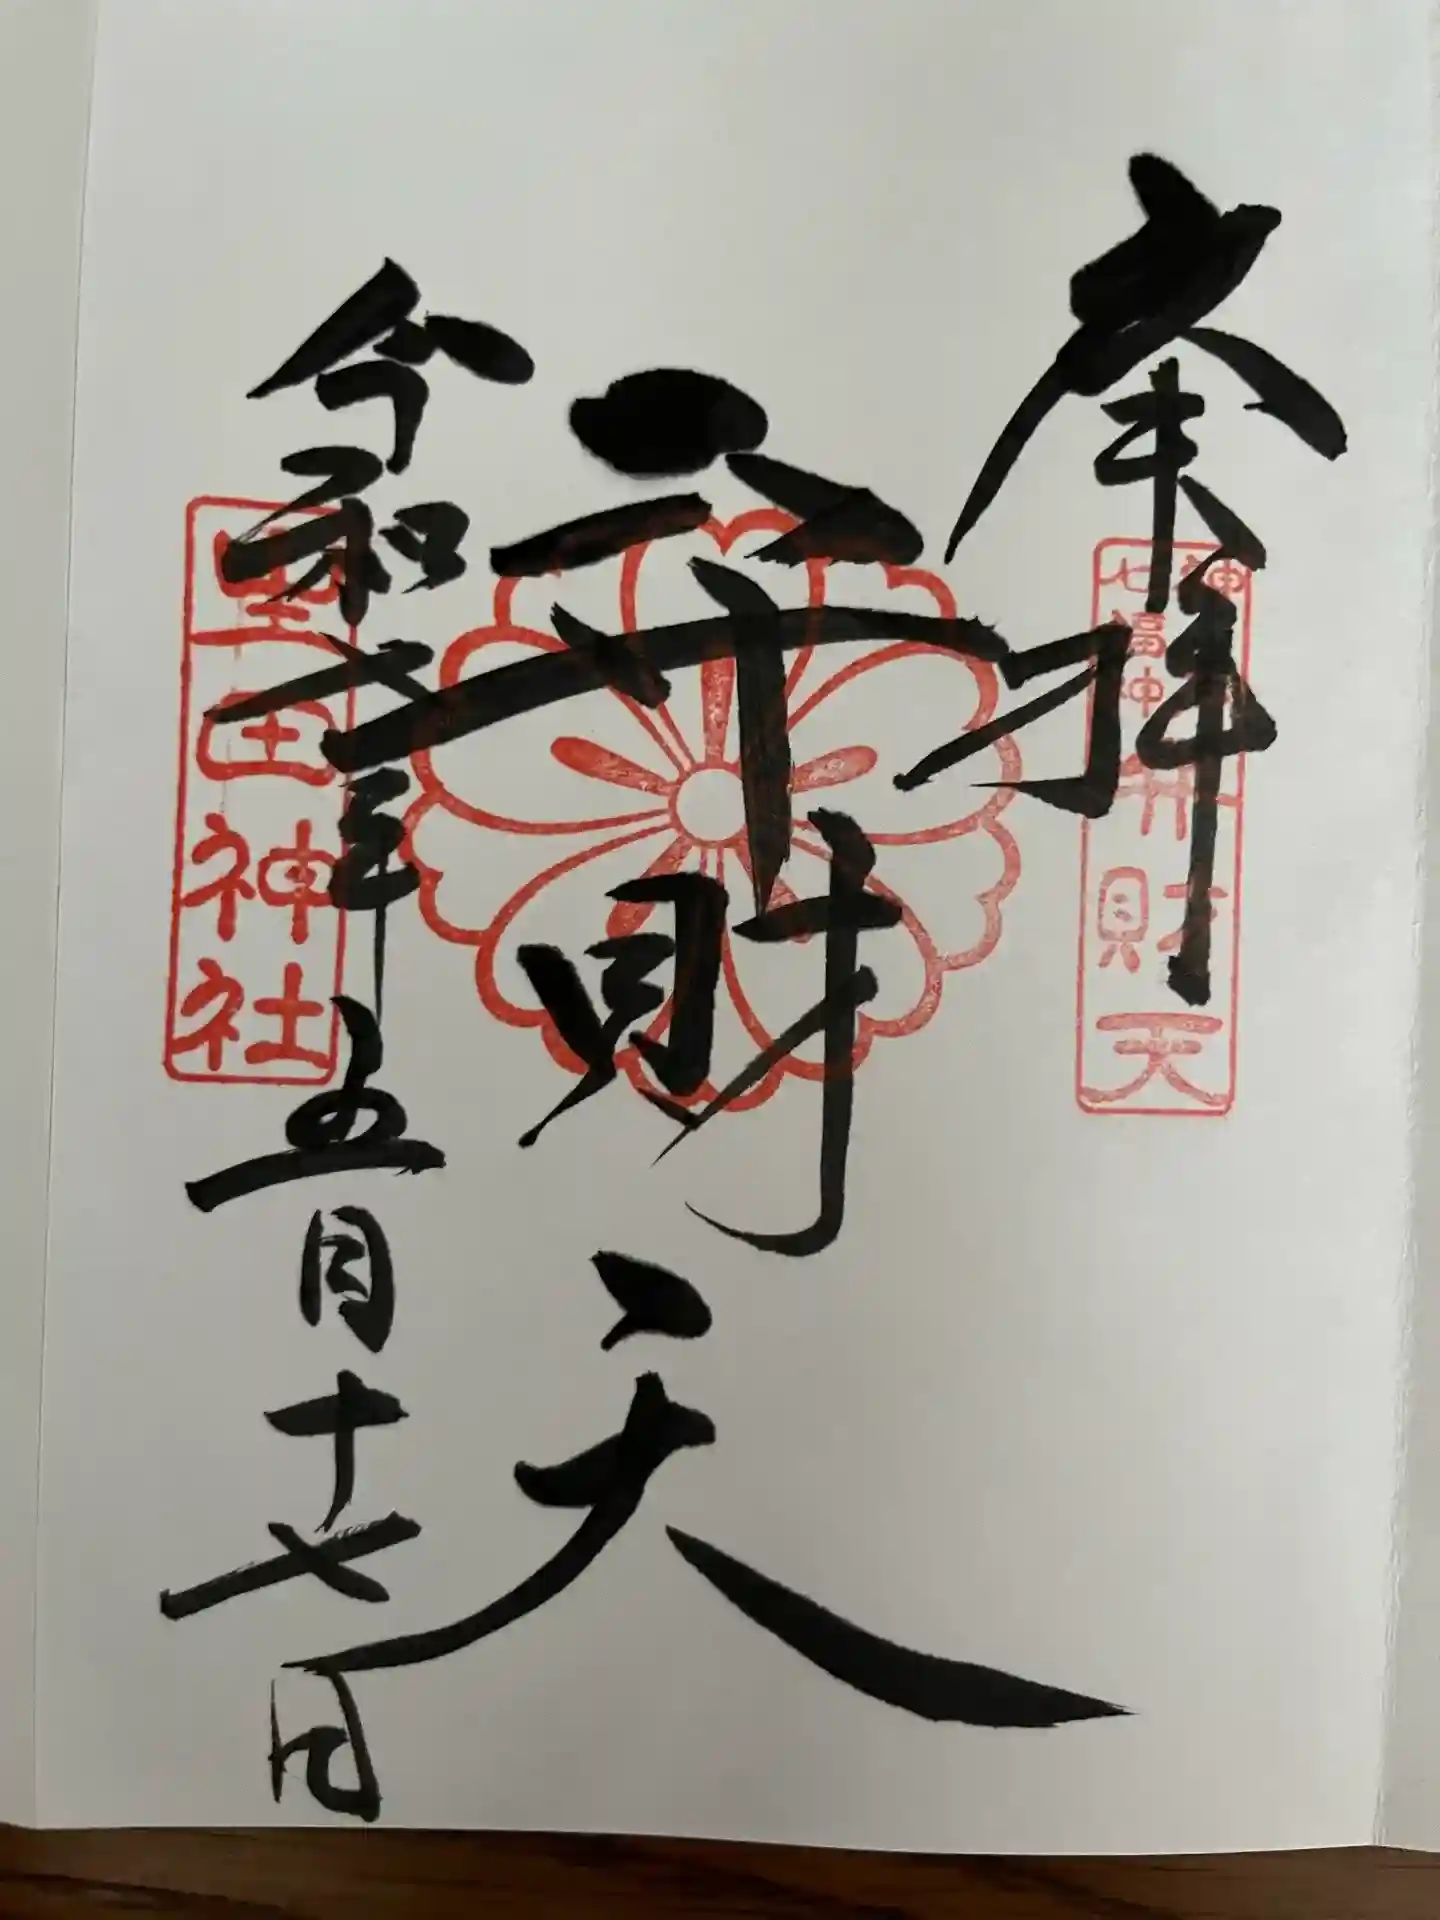 奉拝
神
七福神
弁財天
弁財天
令和七年五月十七日
生田神社